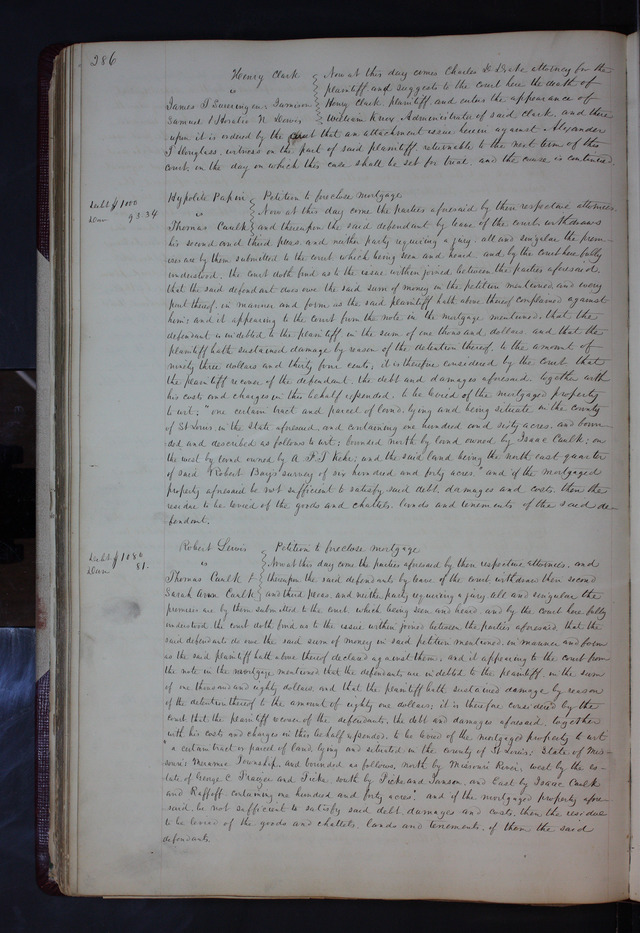 286
Henry Clark
vs
James T Sweringen &
Samuel & Horatio N Lewis
Now at this day comes Charles D Drake attorney for the
plaintiff and suggests to the court here the death of
Henry Clark plaintiff and enters the appearance of
William Administrator of said Clark, and there
upon it is ordered by the court that an attachment issue herein against Alexander
J Douglass, witness on the part of said plaintiff returnable to the next term of this
court, in the day on which this case shall be set for trial, and the cause is continued.
Debt $1000
Dam 93.34
Hypolite Papin
vs
Thomas Caulk
Petition to foreclose mortgage
Now at this day come the parties aforesaid by their respective attornies
and thereupon the said defendant by leave of the court withdraws
his second and third pleas, and neither party requiring a jury, all and singular the prem-
ises are by them submitted to the court which being seen and heard, and by the court here fully
understood, the court doth find as to the issue within joined between the parties aforesaid,
that the said defendant does owe the said sum of money in the petition mentioned, and every
part thereof, in manner and form as the said plaintiff hath above thereof complained against
him; and it appearing to the court from the note in the mortgage mentioned, that the
defendant is indebted to the plaintiff in the sum of one thousand dollars, and that the
plaintiff hath sustained damage by reason of the detention thereof, to the amount of
ninety three dollars and thirty four cents; it is therefore considered by the court that
the plaintiff recover of the defendant, the debt and damages aforesaid together with
his costs and charges in this behalf expended, to be levied of the mortgaged property
to wit; "one certain tract and parcel of land, lying and being situate in the county
of St Louis, in the state aforesaid, and containing one hundred and sixty acres, and boun-
ded and described as follows to wit; bounded north by land owned by Isaac Caulk; on
the west by land owned by A. F. S. and the said land being the north east quarter
of said Robert survey of six hundred and forty acres." and if the mortgaged
property aforesaid be not sufficient to satisfy said debt, damages and costs, then the
residue to be levied of the goods and chattels, lands and tenements of the said de-
fendant.
Debt $1080
Dam 81.
Robert Lewis
vs
Thomas Caulk &
Sarah Ann Caulk
Petition to foreclose mortgage
Now at this day come the parties aforesaid by their respective attornies, and
thereupon the said defendants by leave of the court withdraw their second
and third pleas, and neither party requiring a jury all and singular the
premises are by them submitted to the court, which being seen and heard, and by the court here, fully
understood the court doth find as to the issue within joined between the parties aforesaid, that the
said defendants do owe the said sum of money in said petition mentioned, in manner and form
as the said plaintiff hath above thereof declared against them, and it appearing to the court from
the note in the mortgage mentioned that the defendants are indebted to the plaintiff, in the sum
of one thousand and eighty dollars, and that the plaintiff hath sustained damage by reason
of the detention thereof to the amount of eighty one dollars; it is therefore considered by the
court that the plaintiff recover of the defendants, the debt and damages aforesaid, together
with his costs and charges in this behalf expended, to be levied of the mortgaged property to wit
"a certain tract or parcel of land, lying and situated in the county of St Louis; State of Mis-
souri, Township and bounded as follows, north by Missouri River, west by the es-
tate of George C and south by and and East by Isaac Caulk
and containing one hundred and forty acres". and if the mortgaged property afore-
said, be not sufficient to satisfy said debt, damages and costs, then the residue
to be levied of the goods and chattels, lands and tenements, of them the said
defendants.